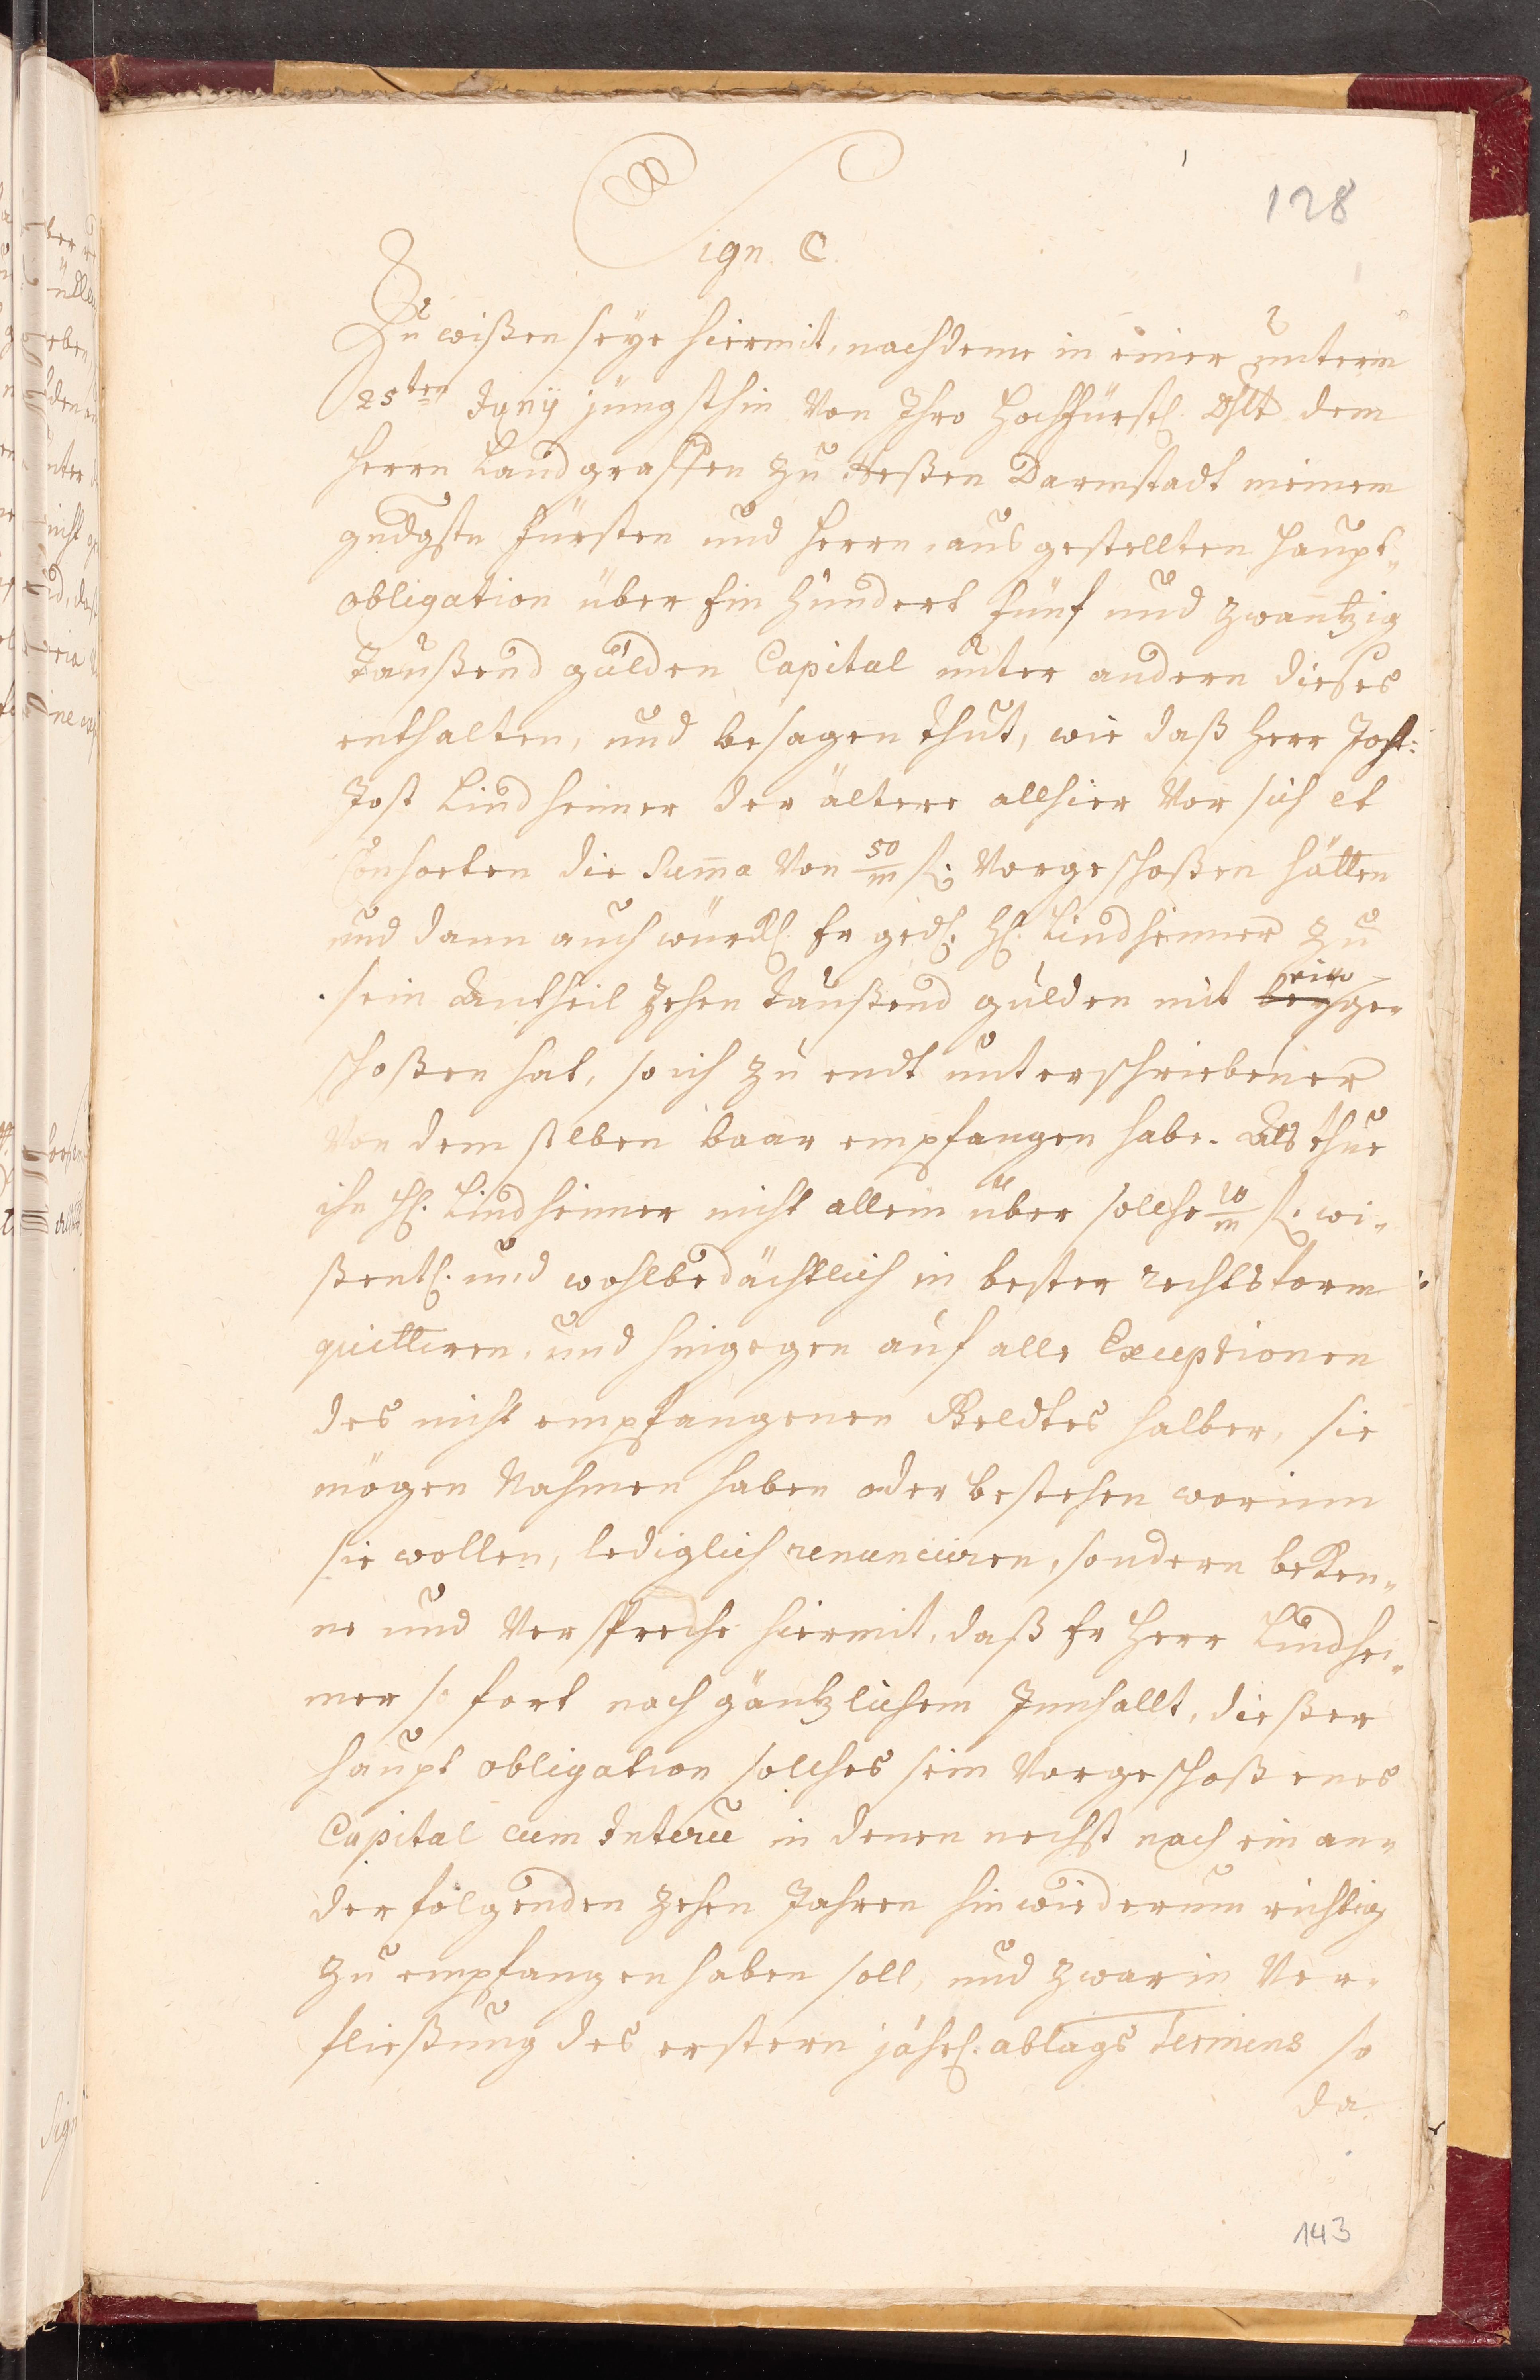 128
Sign. C.
Zu wißen seye hiermit, nachdeme in einer unterm
25ten Junÿ jüngsthin von Ihro Hochfürstl. Dhlt. dem
Herrn Landgraffen zu Heßen Darmstadt meinem
gndgstn Fürsten und Herrn, ausgestellten Haupt-
obligation über Ein Hundert fünf und zwantzig
Taußend gulden Capital unter andern dieses
enthalten, und besagen thut, wie daß Herr Joh:
Jost Lindheimer der ältere allhier vor sich et
Consorten die Sum̅a von 50/m fl. vorgeschoßen hätten
und dann auch würkl. Er gedl. H. Lindheimer zu
sein Antheil zehen taußend gulden mit bey einge-
schoßen hat, so ich zu endt unterschriebener
von dem selben baar empfangen habe. Als thue
ihn H. Lindheimer nicht allein über solche 10/m fl. wi-
ßentl. und wohlbedächtlich in bester rechtsform
quittiren, und hingegen auf alle Exceptionen
des nicht empfangenen Geldtes halber, sie
mögen Nahmen haben oder bestehen worinn
sie wollen, lediglich renunciiren, sondern beken-
ne und verspreche hiermit, daß Er Herr Lindhei-
mer so fort nach gäntzlichem Innhallt, dießer
Haupt obligation solches sein vorgeschoßenes
Capital cum Interee in denen nechst nach ein an-
der folgenden zehen Jahren hinwiederum richtig
zu empfangen haben soll, und zwar in Ver-
fließung des erstern jährl. ablags Termins so
da
143